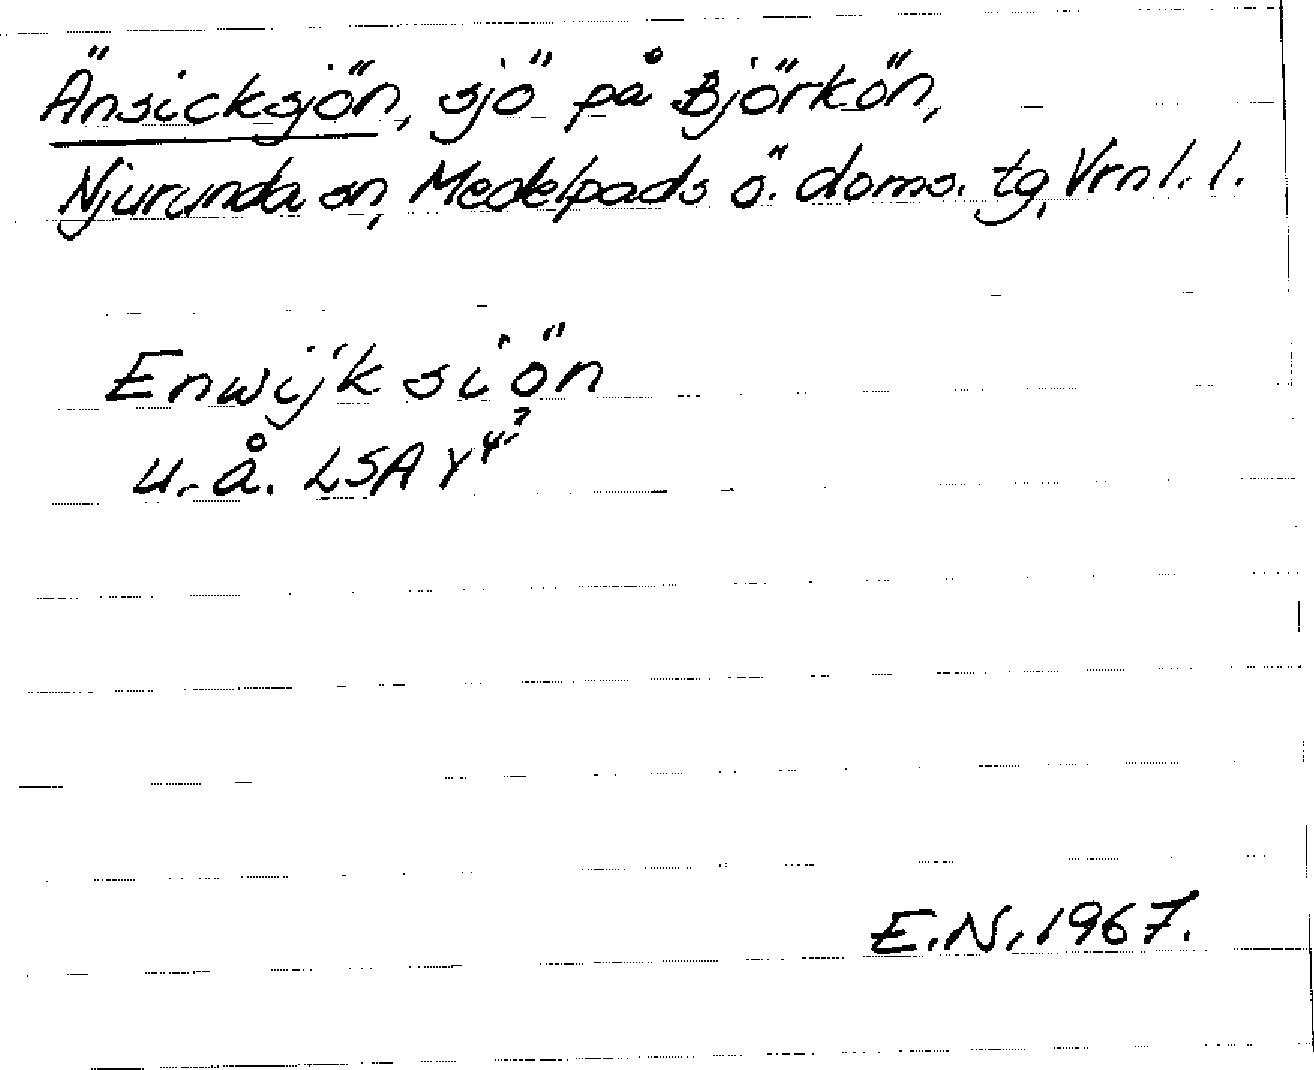 Änsicksjön, sjö på Björkön,
Njurunda sn, Medelpads ö. doms. tg, Vrnl. l.
Enwijk siön
u. å. LSA Y⁴⁻³
E.N. 1967.